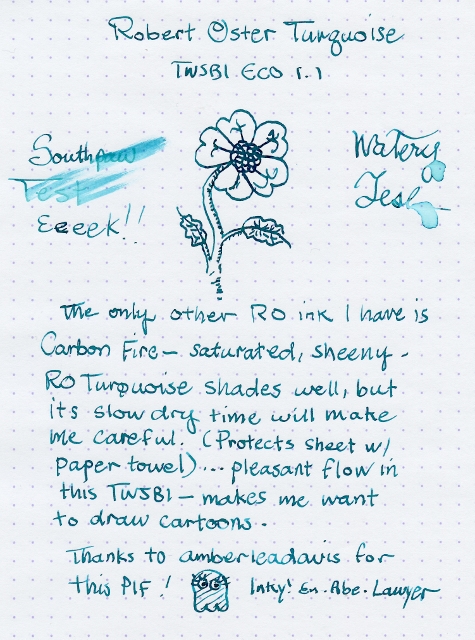 Robert Oster Turquoise
TWSBI ECO 1.1
Southpaw
Test
Eeeek!!
Watery
Test
The only other RO ink I have is
Carbon Fire – saturated, sheeny –
RO Turquoise shades well, but
its slow dry time will make
me careful. (Protects sheet w/
paper towel)... pleasant flow in
this TWSBI – makes me want
to draw cartoons.
Thanks to amberleadavis for
this PIF! Inky! En. Abe. Lawyer